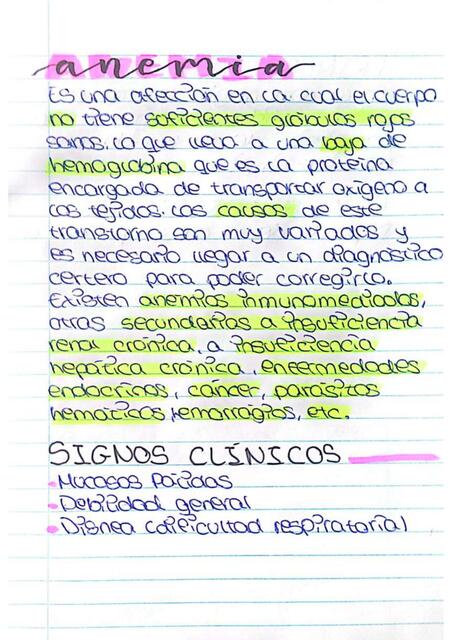 anemia
Es una afección en la cual el cuerpo
no tiene suficientes glóbulos rojos
sanos. Lo que lleva a una baja de
hemoglobina que es la proteína
encargada de transportar oxígeno a
los tejidos. Las causas de este
transtorno son muy variados y
es necesario llegar a un diagnóstico
certero para poder corregirlo.
Existen anemias inmunomediadas,
otras secundarias a insuficiencia
renal crónica, a insuficiencia
hepática crónica, enfermedades
endocrinas, cáncer, parásitos
hemáticos, hemorragias, etc.
SIGNOS CLÍNICOS
- Mucosas Pálidas
- Debilidad general
- Disnea (dificultad respiratoria)